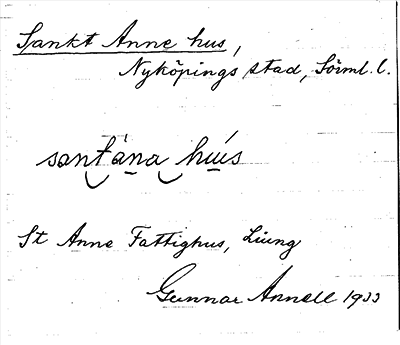 Sankt Anne hus,
Nyköpings stad, Sörml. l.
santána húus
St Anne Fattighus, Liung
Gunnar Annell 1933